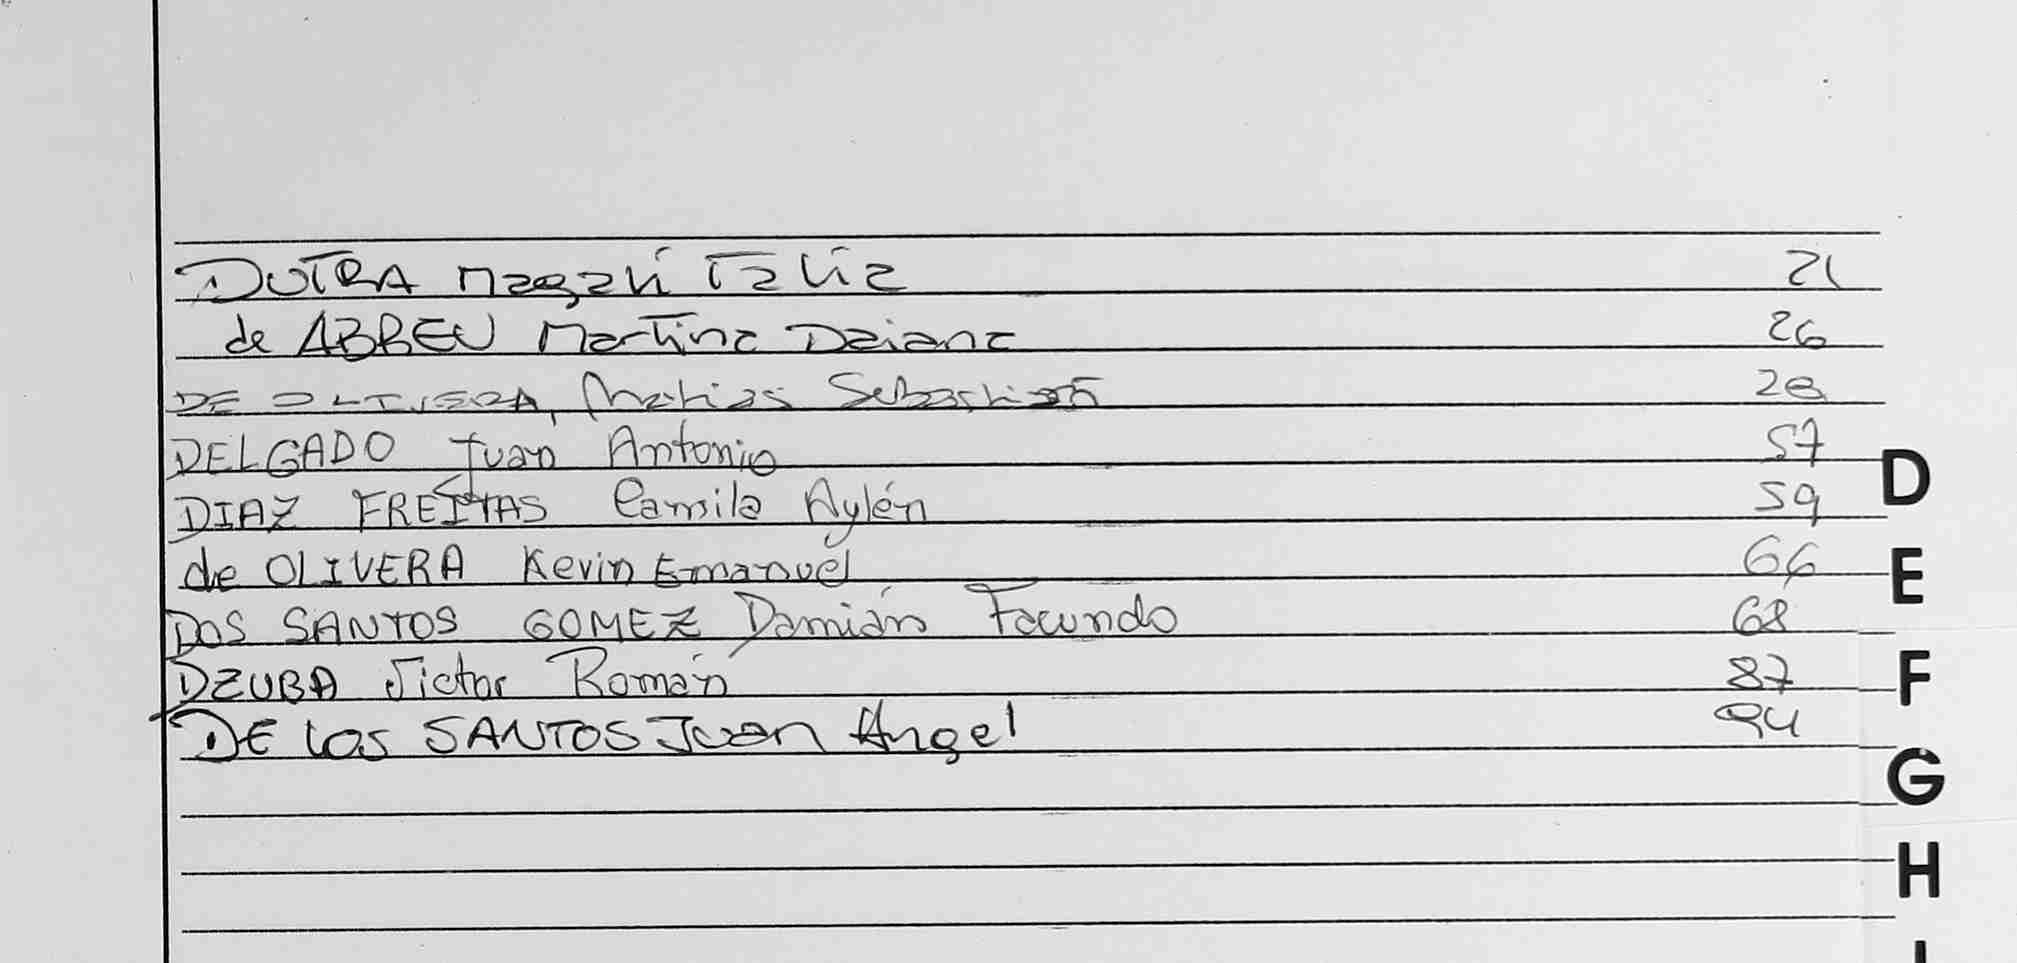 DUTRA Magalí Taliz 21
de ABREU Martina Daiana 26
DE OLIVERA, Matias Sebastian 28
DELGADO Juan Antonio 57
D
DIAZ FREITAS Camila Aylén 59
de OLIVERA Kevin Emanuel 66
E
DOS SANTOS GOMEZ Damián Facundo 68
DZUBA Victor Román 87
F
DE los SANTOS Juan Angel 94
G
H